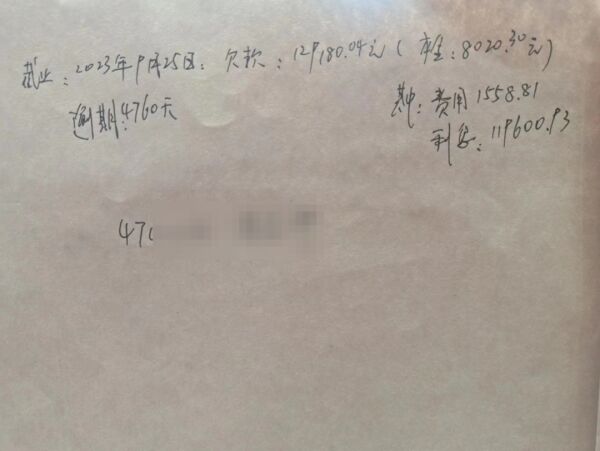 截止：2023年9月25日：欠款：129180.04元（本金：8020.30元）
逾期：4760天
其中：费用1558.81
利息：119600.93
47